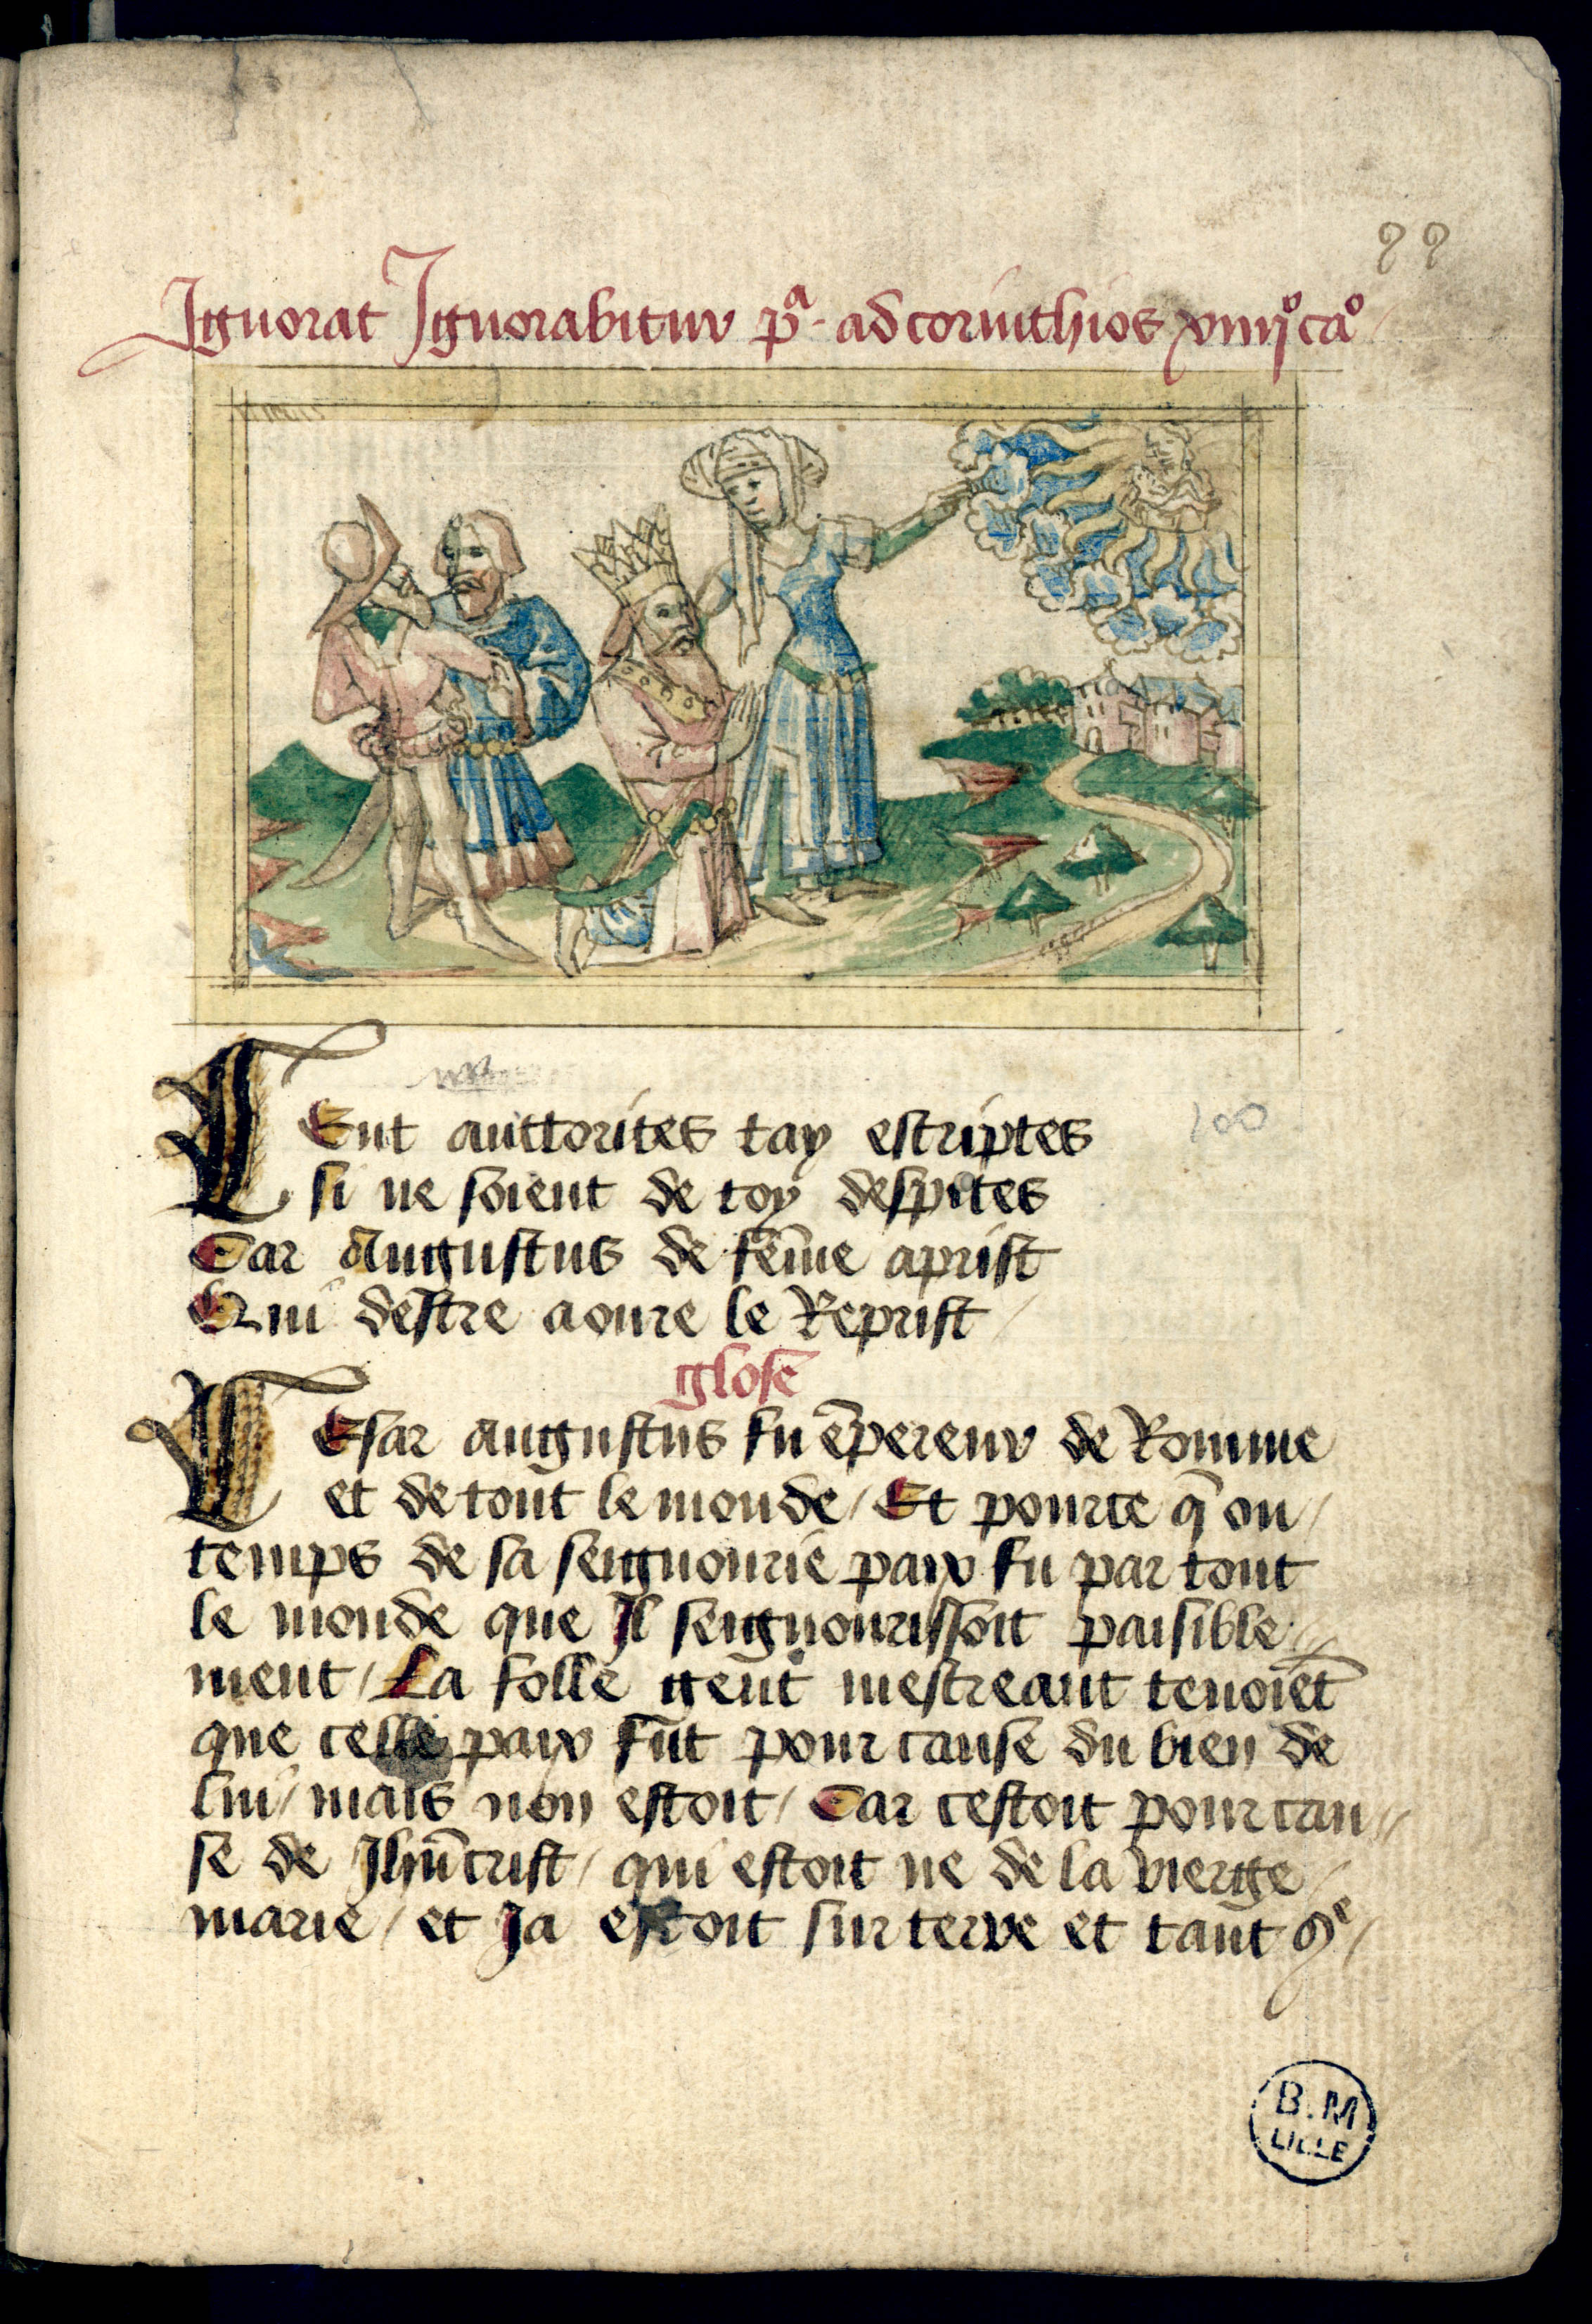 99
Ignorat Ignorabitur pᵃ. ad corinthios xiiijᵒ caᵒ
Cent auttorites tay escriptes
si ne soient de toy despites
Car Augustus de fēme aprist
Qui destre aoure le Reprist /
100
glose
Cesar augustus fu ēpereur de Romme
et de tout le monde / Et pource q̄ ou /
temps de sa seignourie paix fu par tout
le monde que Il seignourissoit paisible //
ment / La folle gent mestreant tenoiēt
que celle paix fut pour cause du bien de
lui / mais non estoit / Car cestoit pour cau //
se de Jhūcrist / qui estoit ne de la vierge /
marie / et Ja estoit sur terre et tant 9ᵉ /
B.M
LILLE